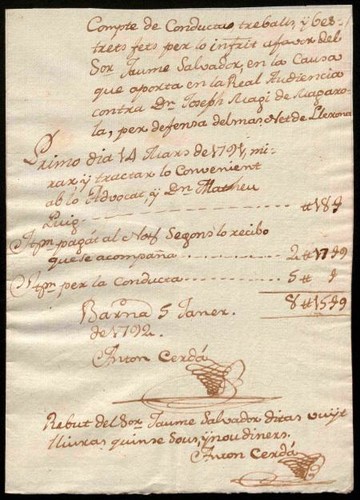 Compte de Conducta, treballs, y bes-
trets fets per lo infrit a favor del
Sor Jaume Salvador, en la Causa
que aporta en la Real Audiencia
contra Dn Joseph Magi de Magaro-
la, per defensa del mas Net de Llerona
Primo dia 14 Mars de 1791, mi-
rar, y tractar lo Convenient
ab lo Advocat, y Dn Matheu
Puig
Itm pagat al Not Segons lo recibo
que se acompaña 2 # 17 s 9
Itm per la Conducta 5 # s
8 # 15 s 9
Barna 5 Janer
de 1792.
Anton Cerdá
Rebut del Sor Jaume Salvador ditas vuyt
lliuras quinse sous, y nou diners.
Anton Cerdá